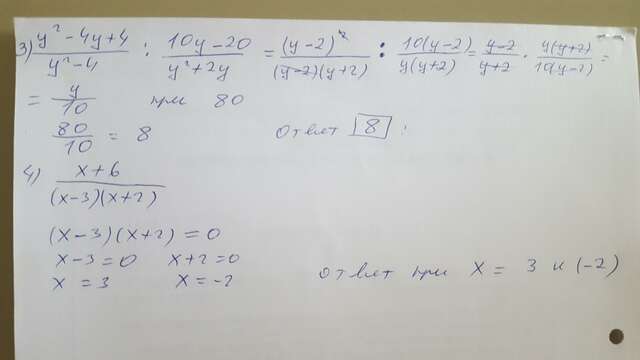 3) (y² - 4y + 4)/(y² - 4) : (10y - 20)/(y² + 2y) = (y - 2)²/((y - 2)(y + 2)) : 10(y - 2)/(y(y + 2)) = (y - 2)/(y + 2) · y(y + 2)/(10(y - 2)) =
= y/10 при 80
80/10 = 8 Ответ 8 .
4) (x + 6)/((x - 3)(x + 2))
(x - 3)(x + 2) = 0
x - 3 = 0 x + 2 = 0
x = 3 x = -2 ответ при x = 3 и (-2)